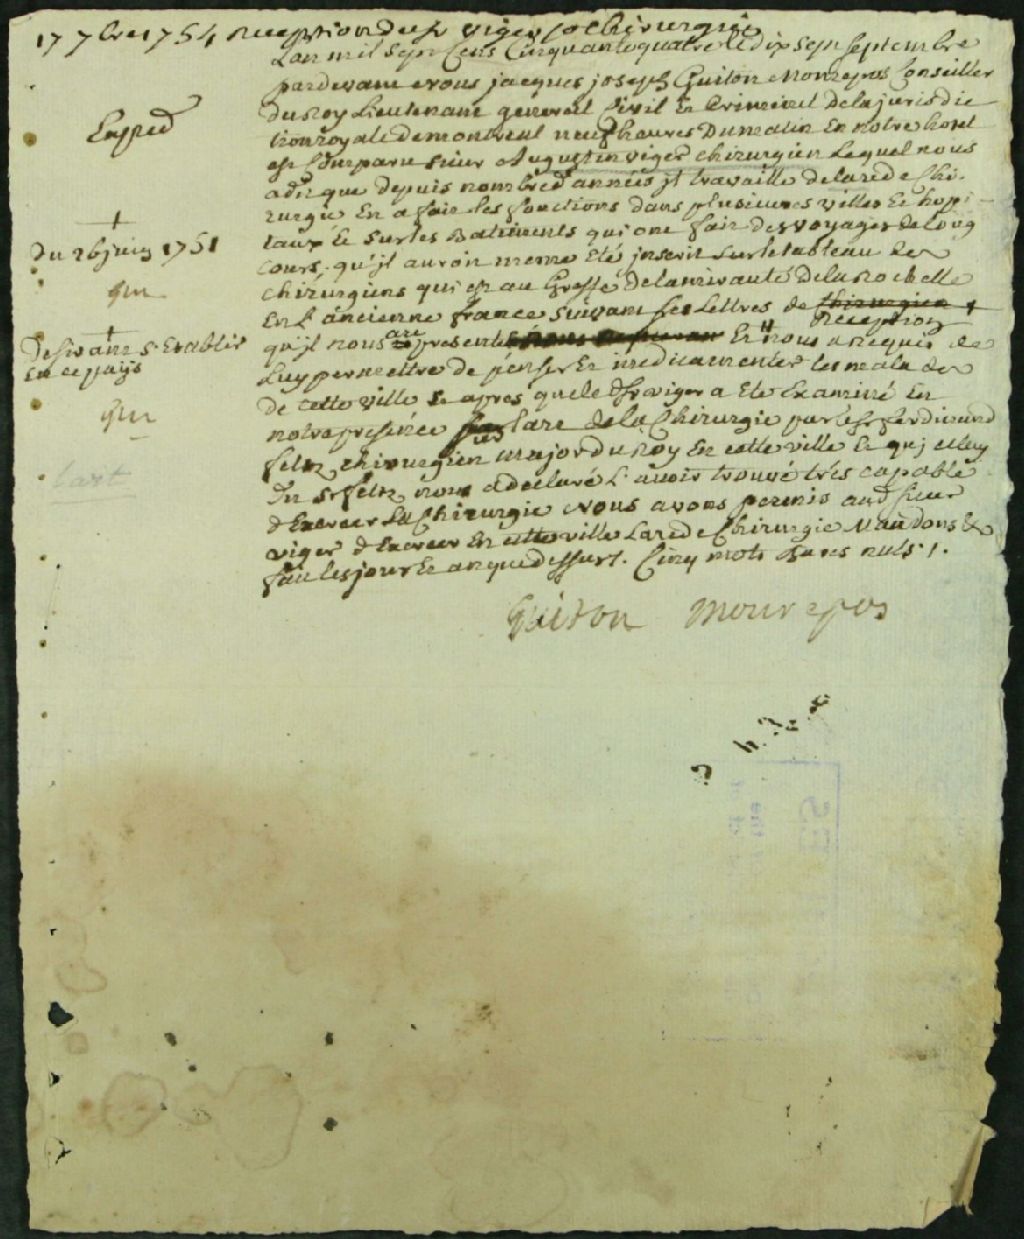 17 7bre 1754 reception du Sr viger chirurgien
Lan mil Sept Cens Cinquante quatre Le dix Sept Septembre
pardevant nous jacques joseph Guiton Monrepos Conseiller
du Roy Lieutenant general Civil Et Criminel de la jurisdic
tion royale de montreal neuf heures Du matin En notre hotel
Exped
est Comparu Sieur Augustin viger chirurgien Lequel nous
a dit que depuis nombre d'années jl travaille de lard de Chi-
rurgie En a fait les fonctions dans plusieures villes Et hopi-
taux Et Sur les Batiments qui ont fait des voyages de Long
du 26 juin 1751
Cours, qu'jl auroit meme Eté jnscrit Sur le tableau des
chirurgiens qui est au Greffe de lamirauté de la Rochelle
gm
En L'ancienne france Suivant Ses Lettres de chirurgien +
Reception
desirant S'Etablir
En ce pays
qu'jl nous a presenté Et nous a requis de
Luy permettre de penser Et medicamenter les malades
gm
de cette ville Et apres que le d. Sr viger a Eté Examiné En
notre presence sur lart de la Chirurgie par le Sr ferdinand
feltz chirurgien major du Roy En cette ville Et qu'jcelluy
lart
du Sr feltz nous a declaré L'avoir trouvé trés capable
d'Exercer La Chirurgie nous avons permis aud Sieur
viger d'Exercer En cette ville Lard de Chirurgie Mandons &c
fait les jour Et an que dessus /. Cinq mots nuls /.
Guiton Monrepos